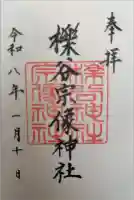 奉拝
櫟谷宗像神社
令和八年一月十日